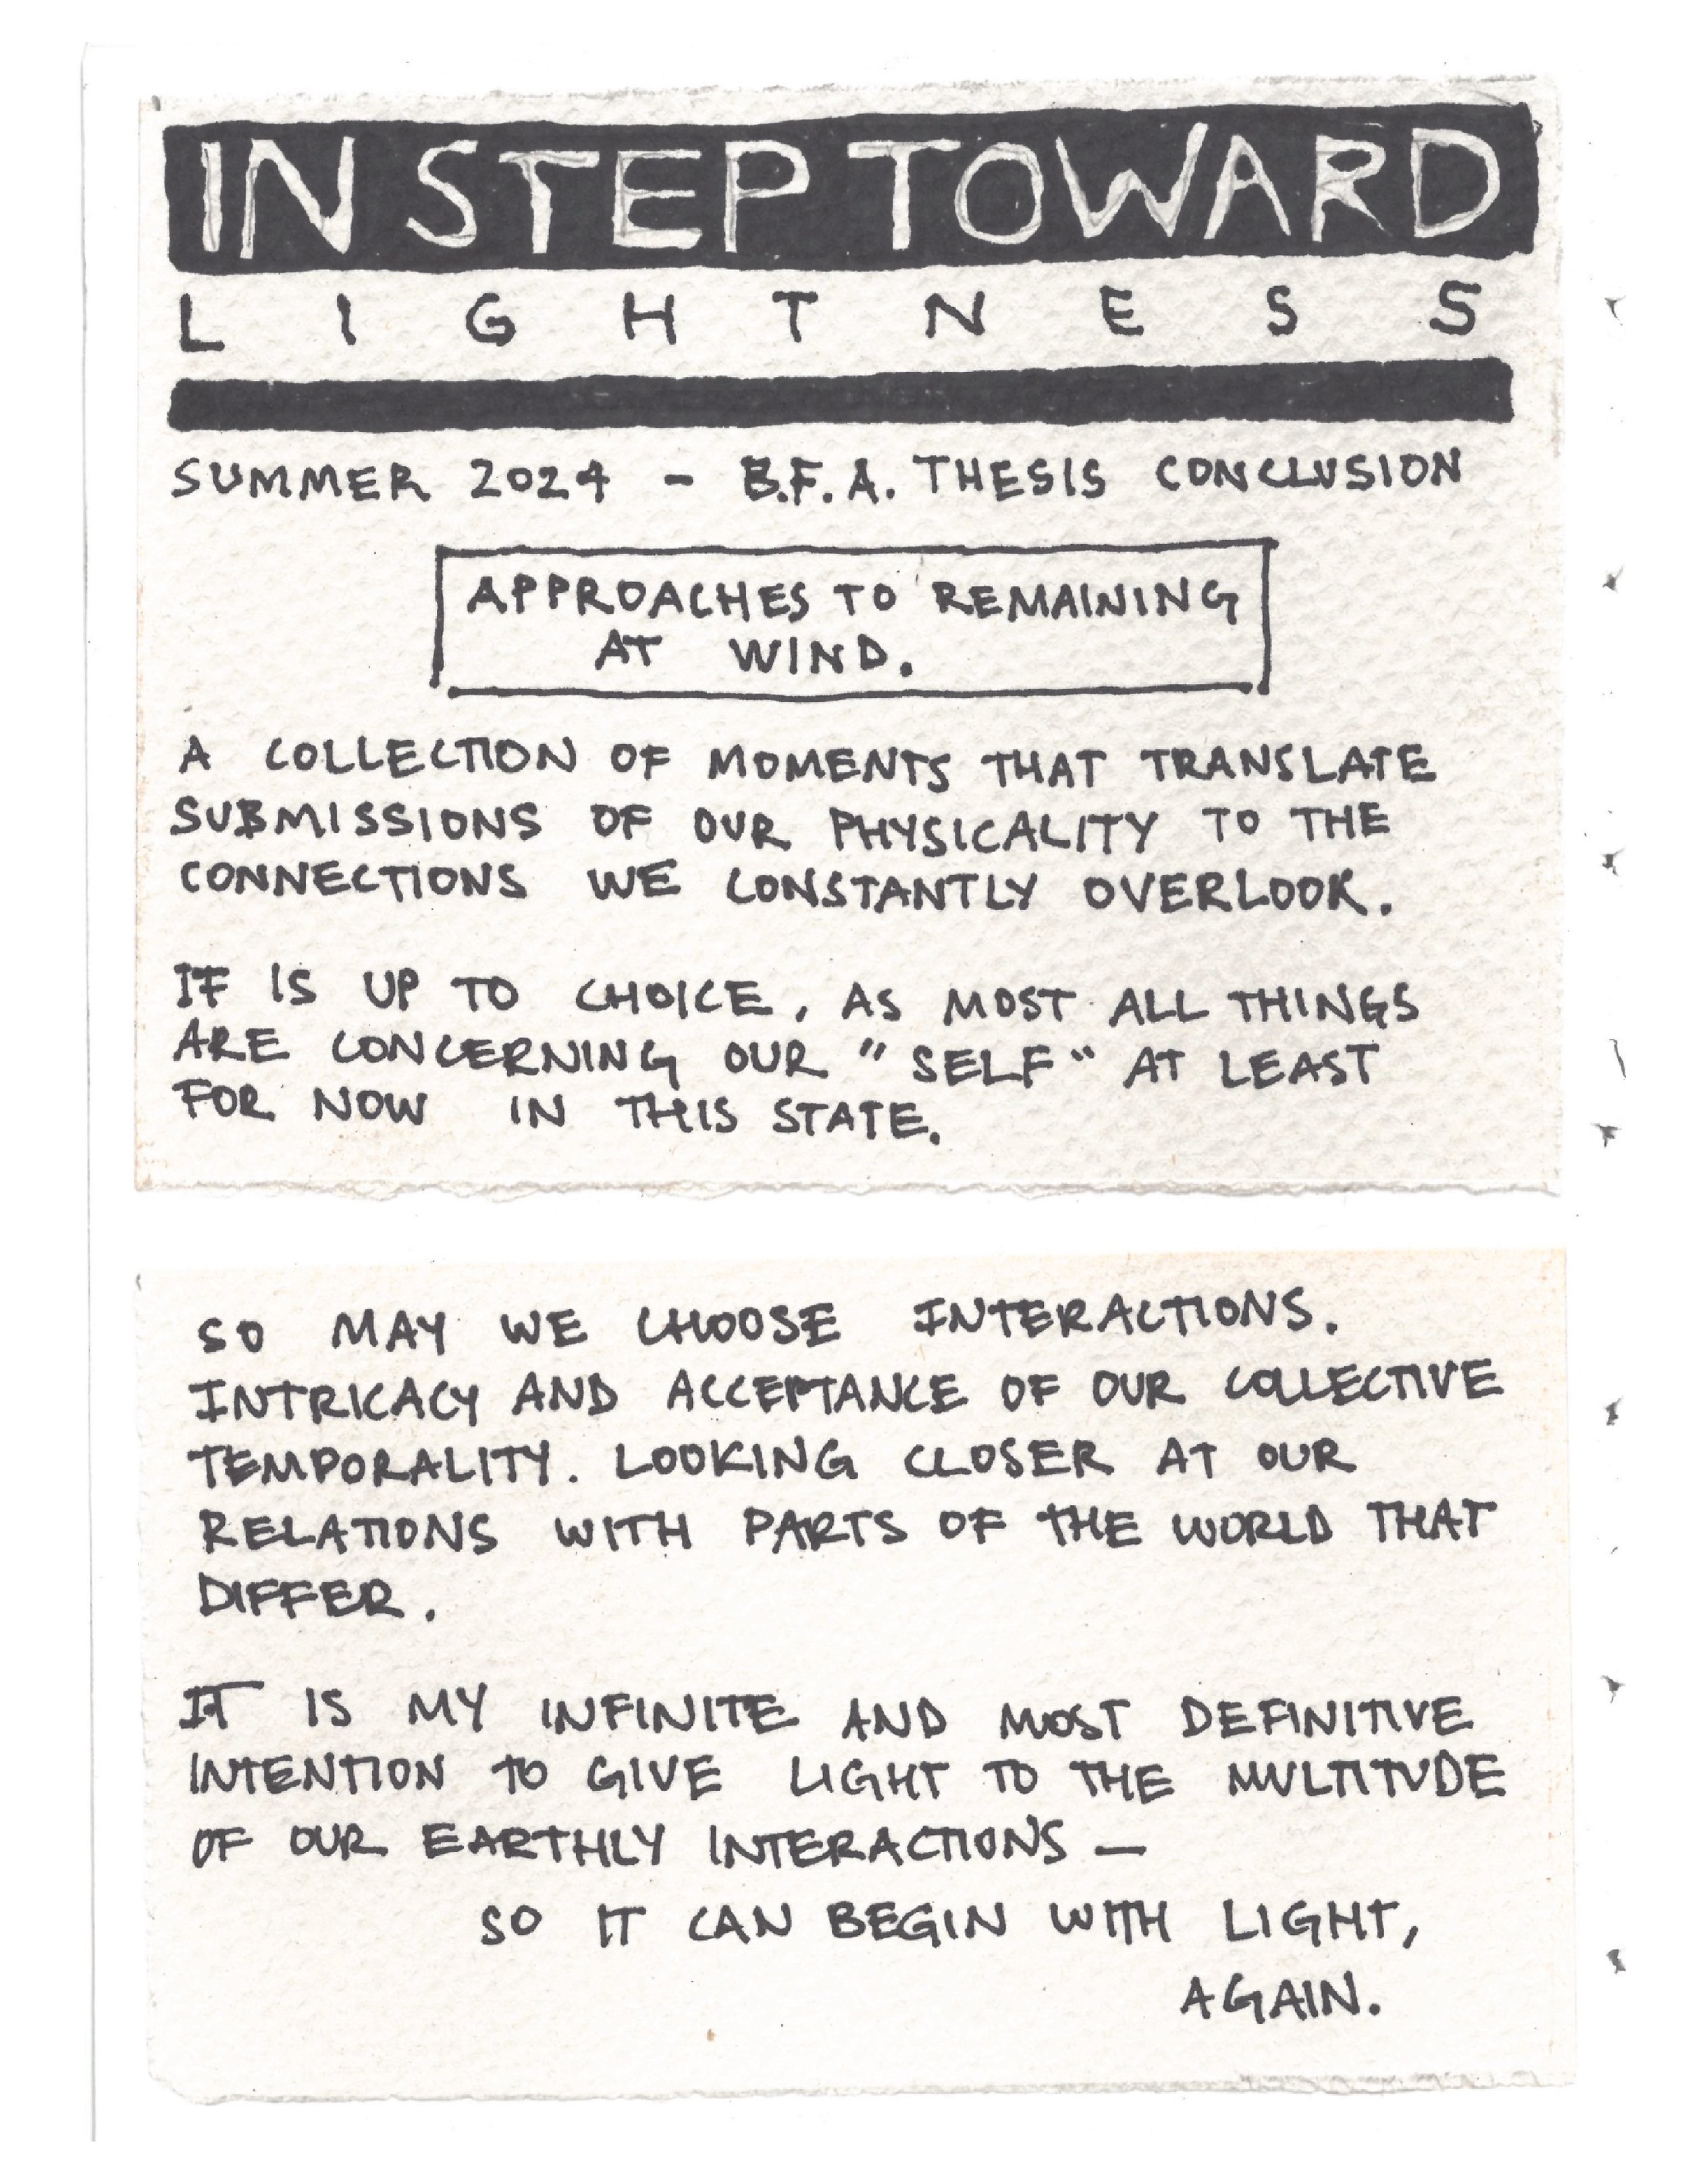 IN STEP TOWARD
LIGHTNESS
SUMMER 2024 - B.F.A. THESIS CONCLUSION
APPROACHES TO REMAINING
AT WIND.
A COLLECTION OF MOMENTS THAT TRANSLATE
SUBMISSIONS OF OUR PHYSICALITY TO THE
CONNECTIONS WE CONSTANTLY OVERLOOK.
IF IS UP TO CHOICE, AS MOST ALL THINGS
ARE CONCERNING OUR "SELF" AT LEAST
FOR NOW IN THIS STATE.
SO MAY WE CHOOSE INTERACTIONS.
INTRICACY AND ACCEPTANCE OF OUR COLLECTIVE
TEMPORALITY. LOOKING CLOSER AT OUR
RELATIONS WITH PARTS OF THE WORLD THAT
DIFFER.
IT IS MY INFINITE AND MOST DEFINITIVE
INTENTION TO GIVE LIGHT TO THE MULTITUDE
OF OUR EARTHLY INTERACTIONS —
SO IT CAN BEGIN WITH LIGHT,
AGAIN.